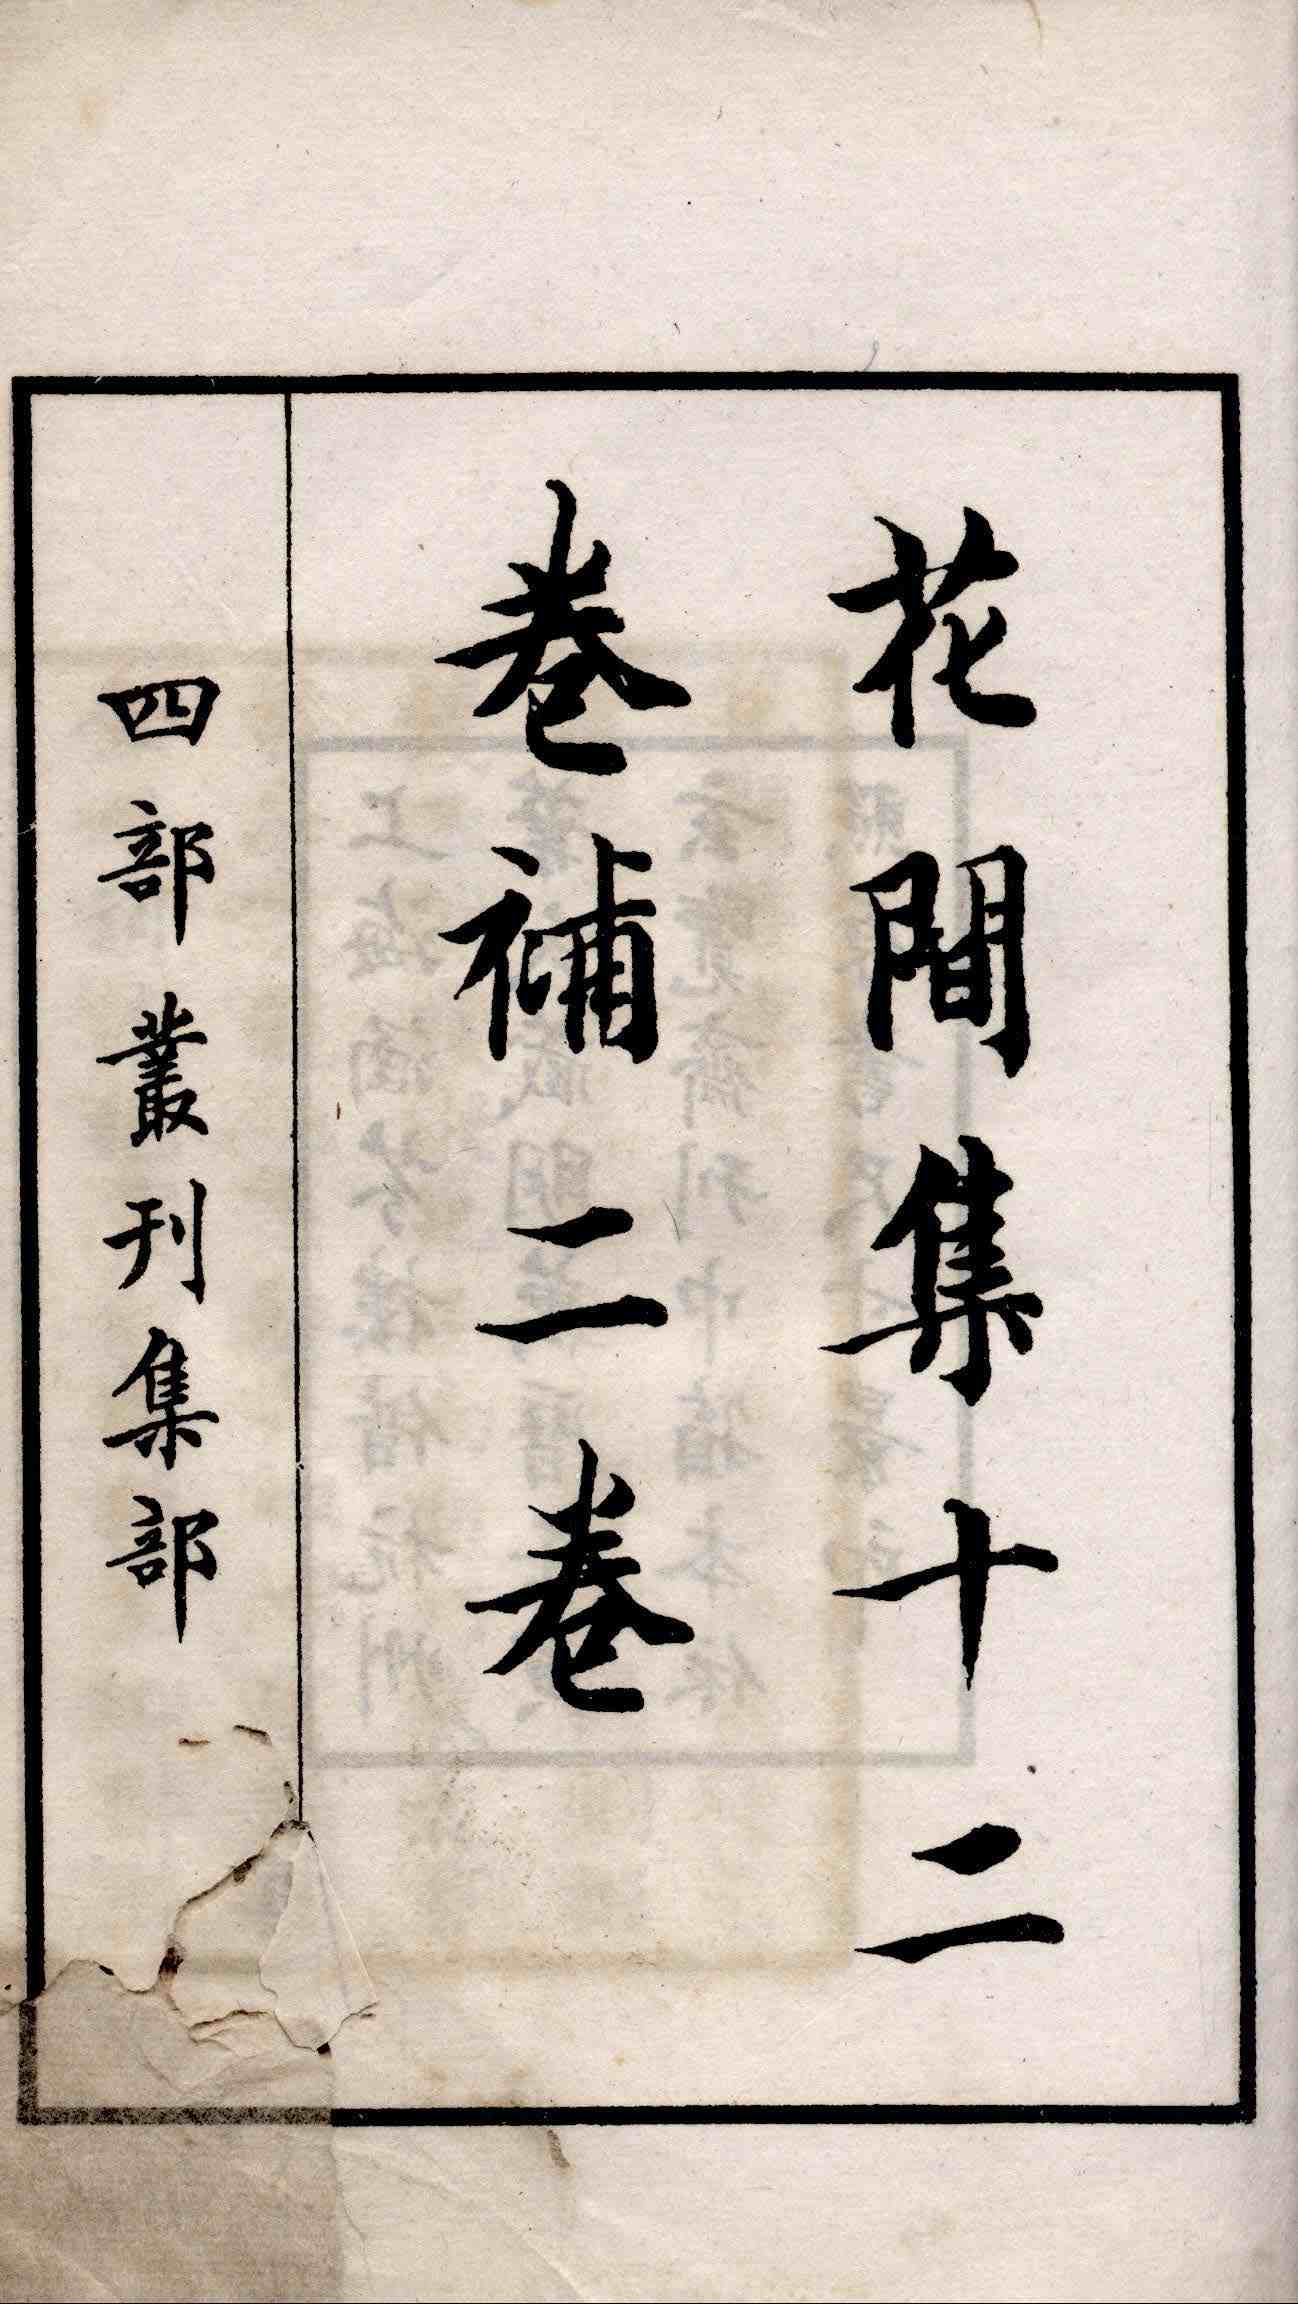 花間集十二
卷補二卷
四部叢刊集部